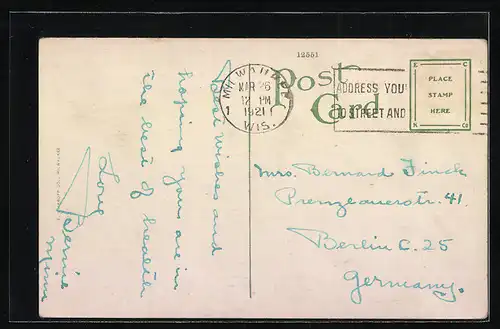 12551
Post
Card
MILWAUKEE
MAR 26
12 PM
1921
WIS.
1
ADDRESS YOU
TO STREET AND
E C
PLACE
STAMP
HERE
N Co
Best wishes and
hoping you are in
the best of health
Love
Bernie
Minn
Mrs. Bernard Finck
Prenzlauerstr. 41.
Berlin C. 25
Germany.